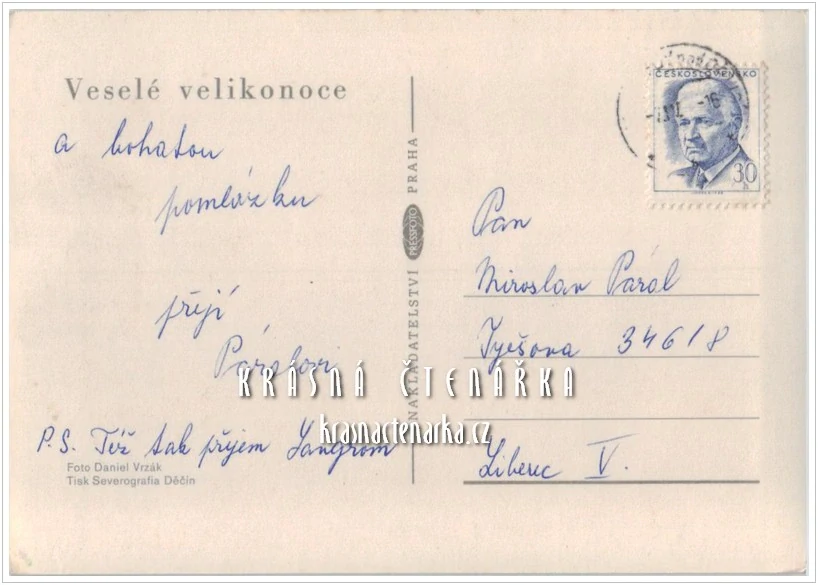 Veselé velikonoce
a bohatou
pomlázku
přejí
Párolovi
P.S. Též tak přejem
Foto Daniel Vrzák
Tisk Severografia Děčín
NAKLADATELSTVÍ PRESSFOTO PRAHA
ČESKOSLOVENSKO
30
Pan
Miroslav Párol
346/8
Liberec V.
KRÁSNÁ ČTENÁŘKA
krasnactenarka.cz